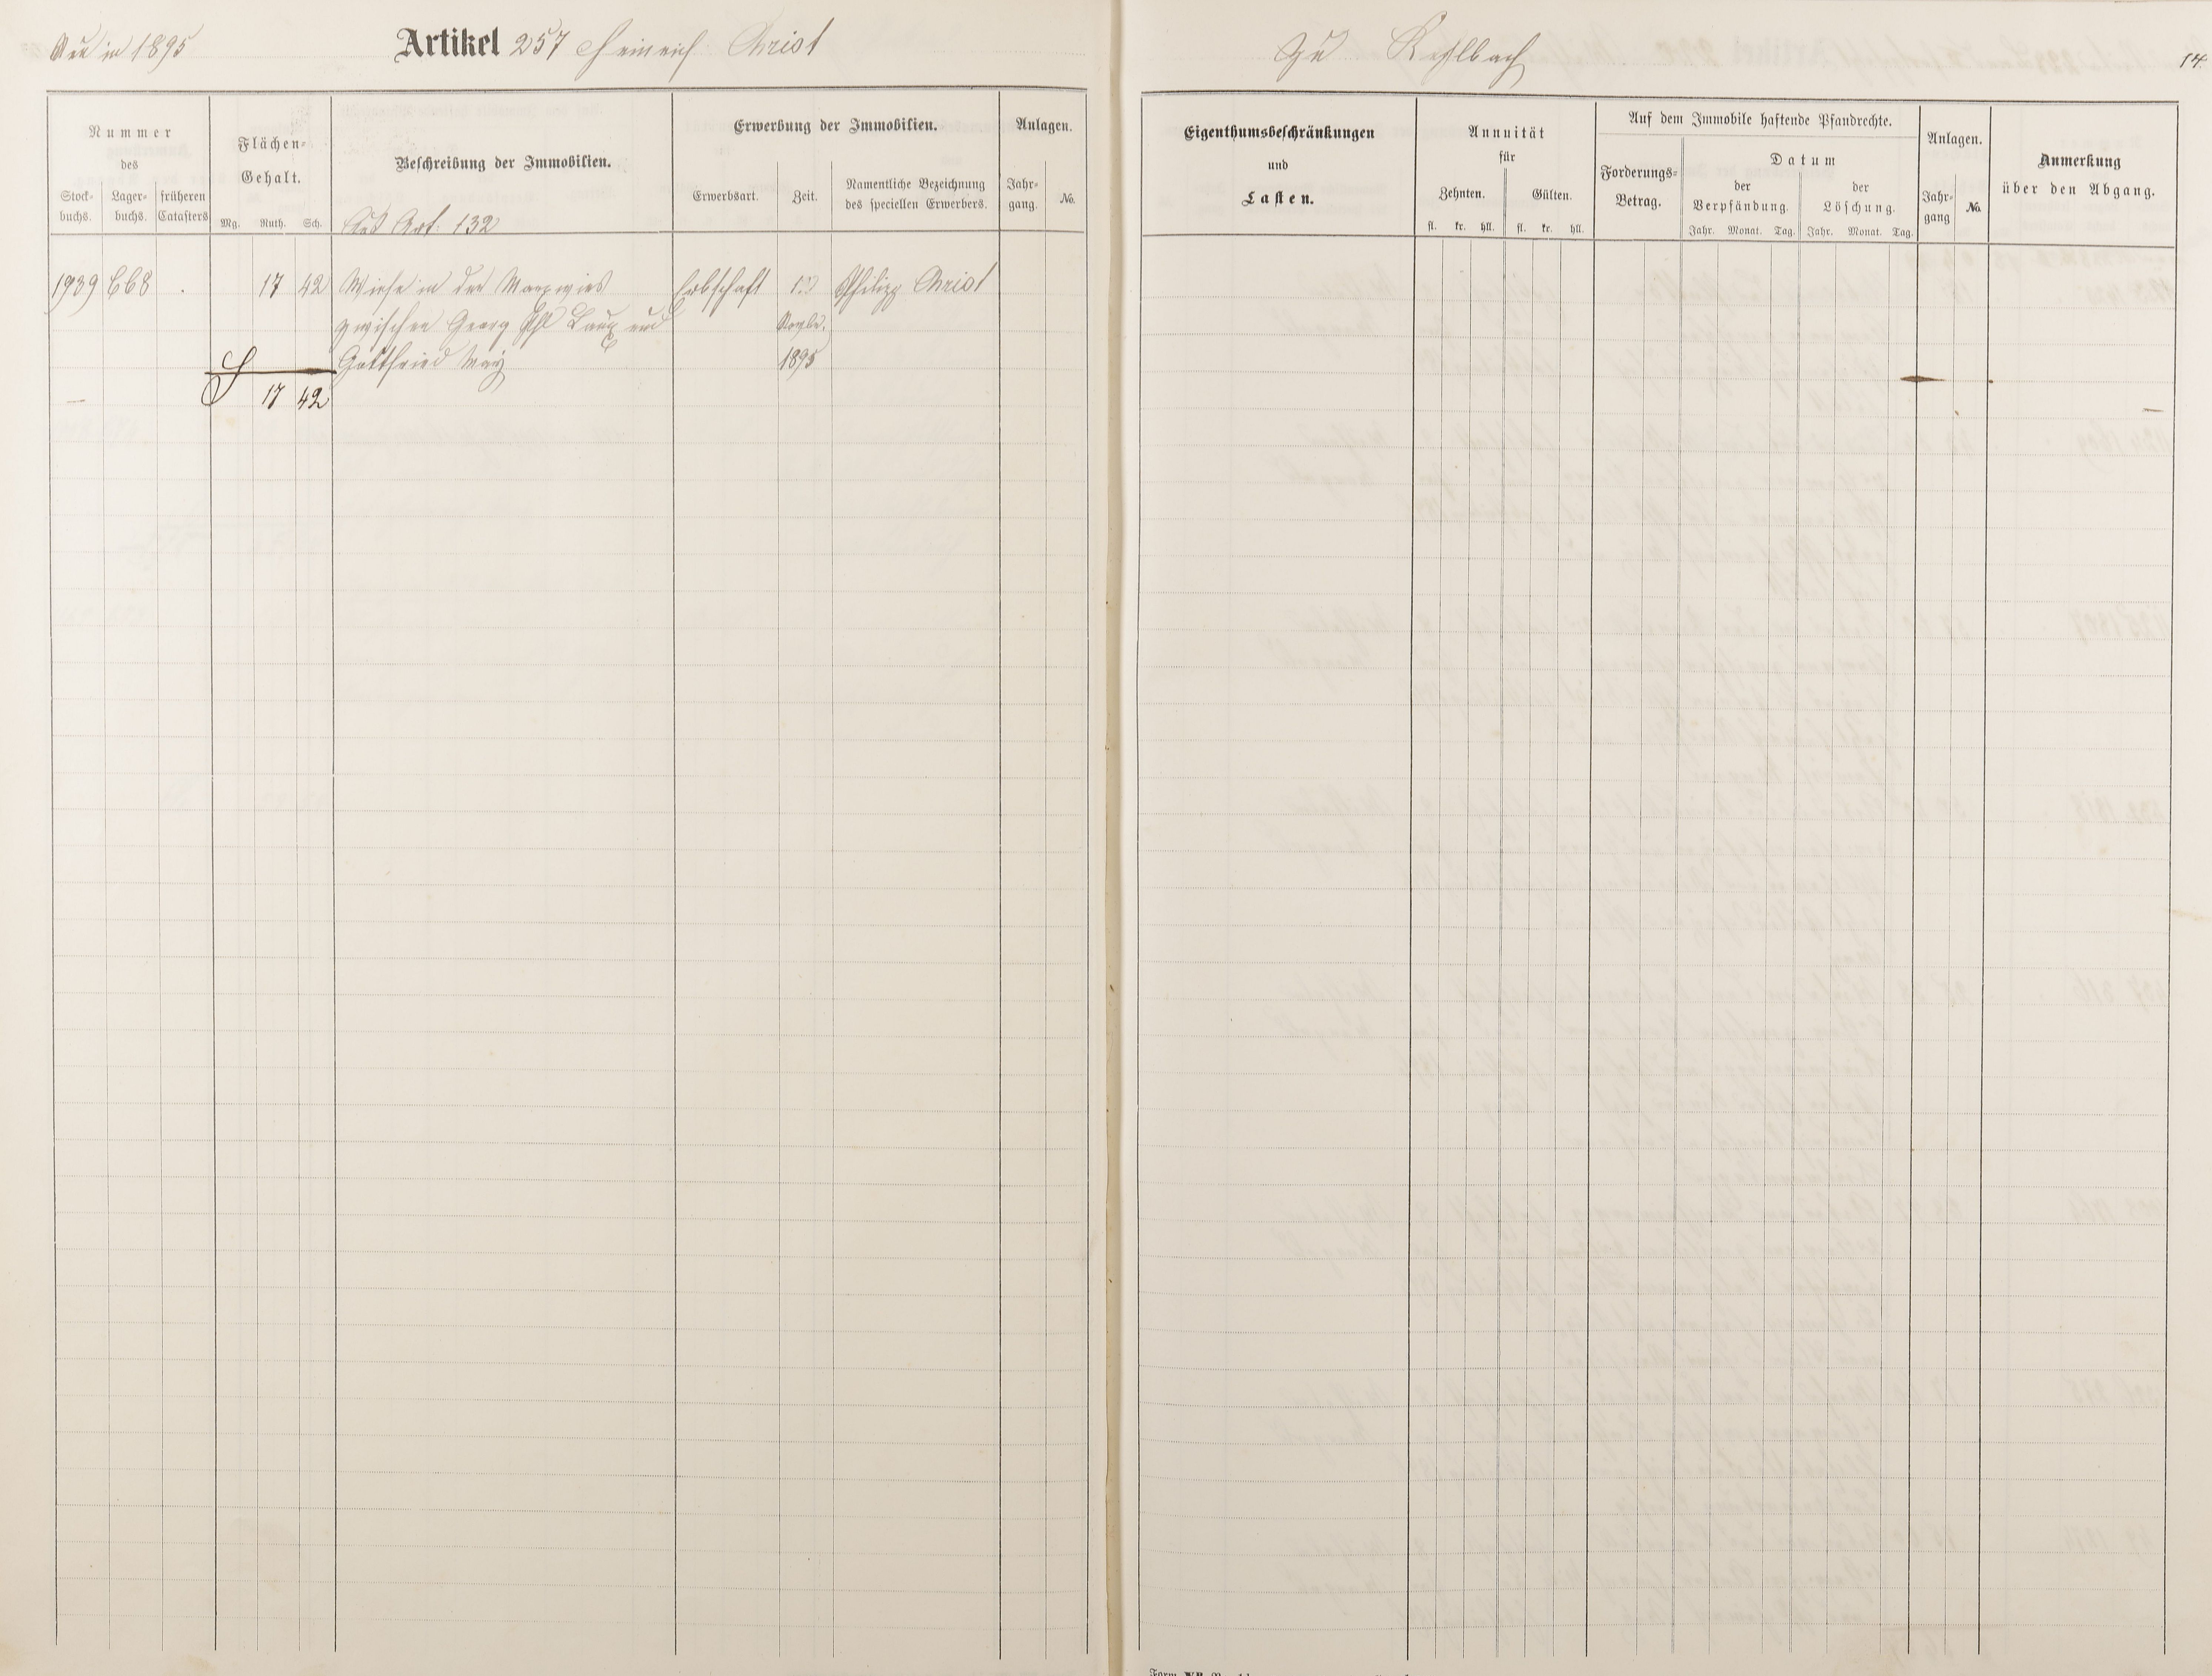 Neu in 1895
Artikel 257 Heinrich Christ
zu
14.
Nummer
des
Stock-
buchs.
Lager-
buchs.
früheren
Catasters
Flächen-
Gehalt.
Mg. Ruth. Sch.
Beschreibung der Immobilien.
Aus Art. 132
Erwerbung der Immobilien.
Erwerbsart.
Zeit.
Namentliche Bezeichnung
des speciellen Erwerbers.
Anlagen.
Jahr-
gang.
No.
Eigenthumsbeschränkungen
und
Lasten.
Annuität
für
Zehnten.
Gülten.
fl. kr. hll. fl. kr. hll.
Auf dem Immobile haftende Pfandrechte.
Forderungs-
Betrag.
Datum
der
Verpfändung.
der
Löschung.
Jahr. Monat. Tag. Jahr. Monat. Tag.
Anlagen.
Jahr-
gang
No.
Anmerkung
über den Abgang.
1939 668 . 17 42 Wiese in der Erbschaft Philipp Christ
zwischen Georg Phl und Novbr.
Gottfried May 1895
S 17 42